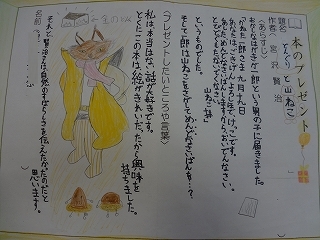 本のプレゼント
題名 どんぐりと山ねこ
作者 宮沢賢治
〈あらすじ〉
おかしなはがきが一郎という男の子に届きました。
かねた一郎さま 九月十九日
あなたは、ごきげんよろしいほで、けっこです。
あした、めんどなさいばんしますから、おいでんなさい。
とびどぐもたないでくなさい。
山ねこ 拝
というものでした。
そして一郎は山ねこをさがしてめんどなさいばんを…？
〈プレゼントしたいところや言葉〉
私は、本当はない話が好きです。
とくにこの本は絵がきれいだったから興味を
持ちました。
それと賢治さんは自然のすばらしさを伝えたかったのだと
思います。
名前